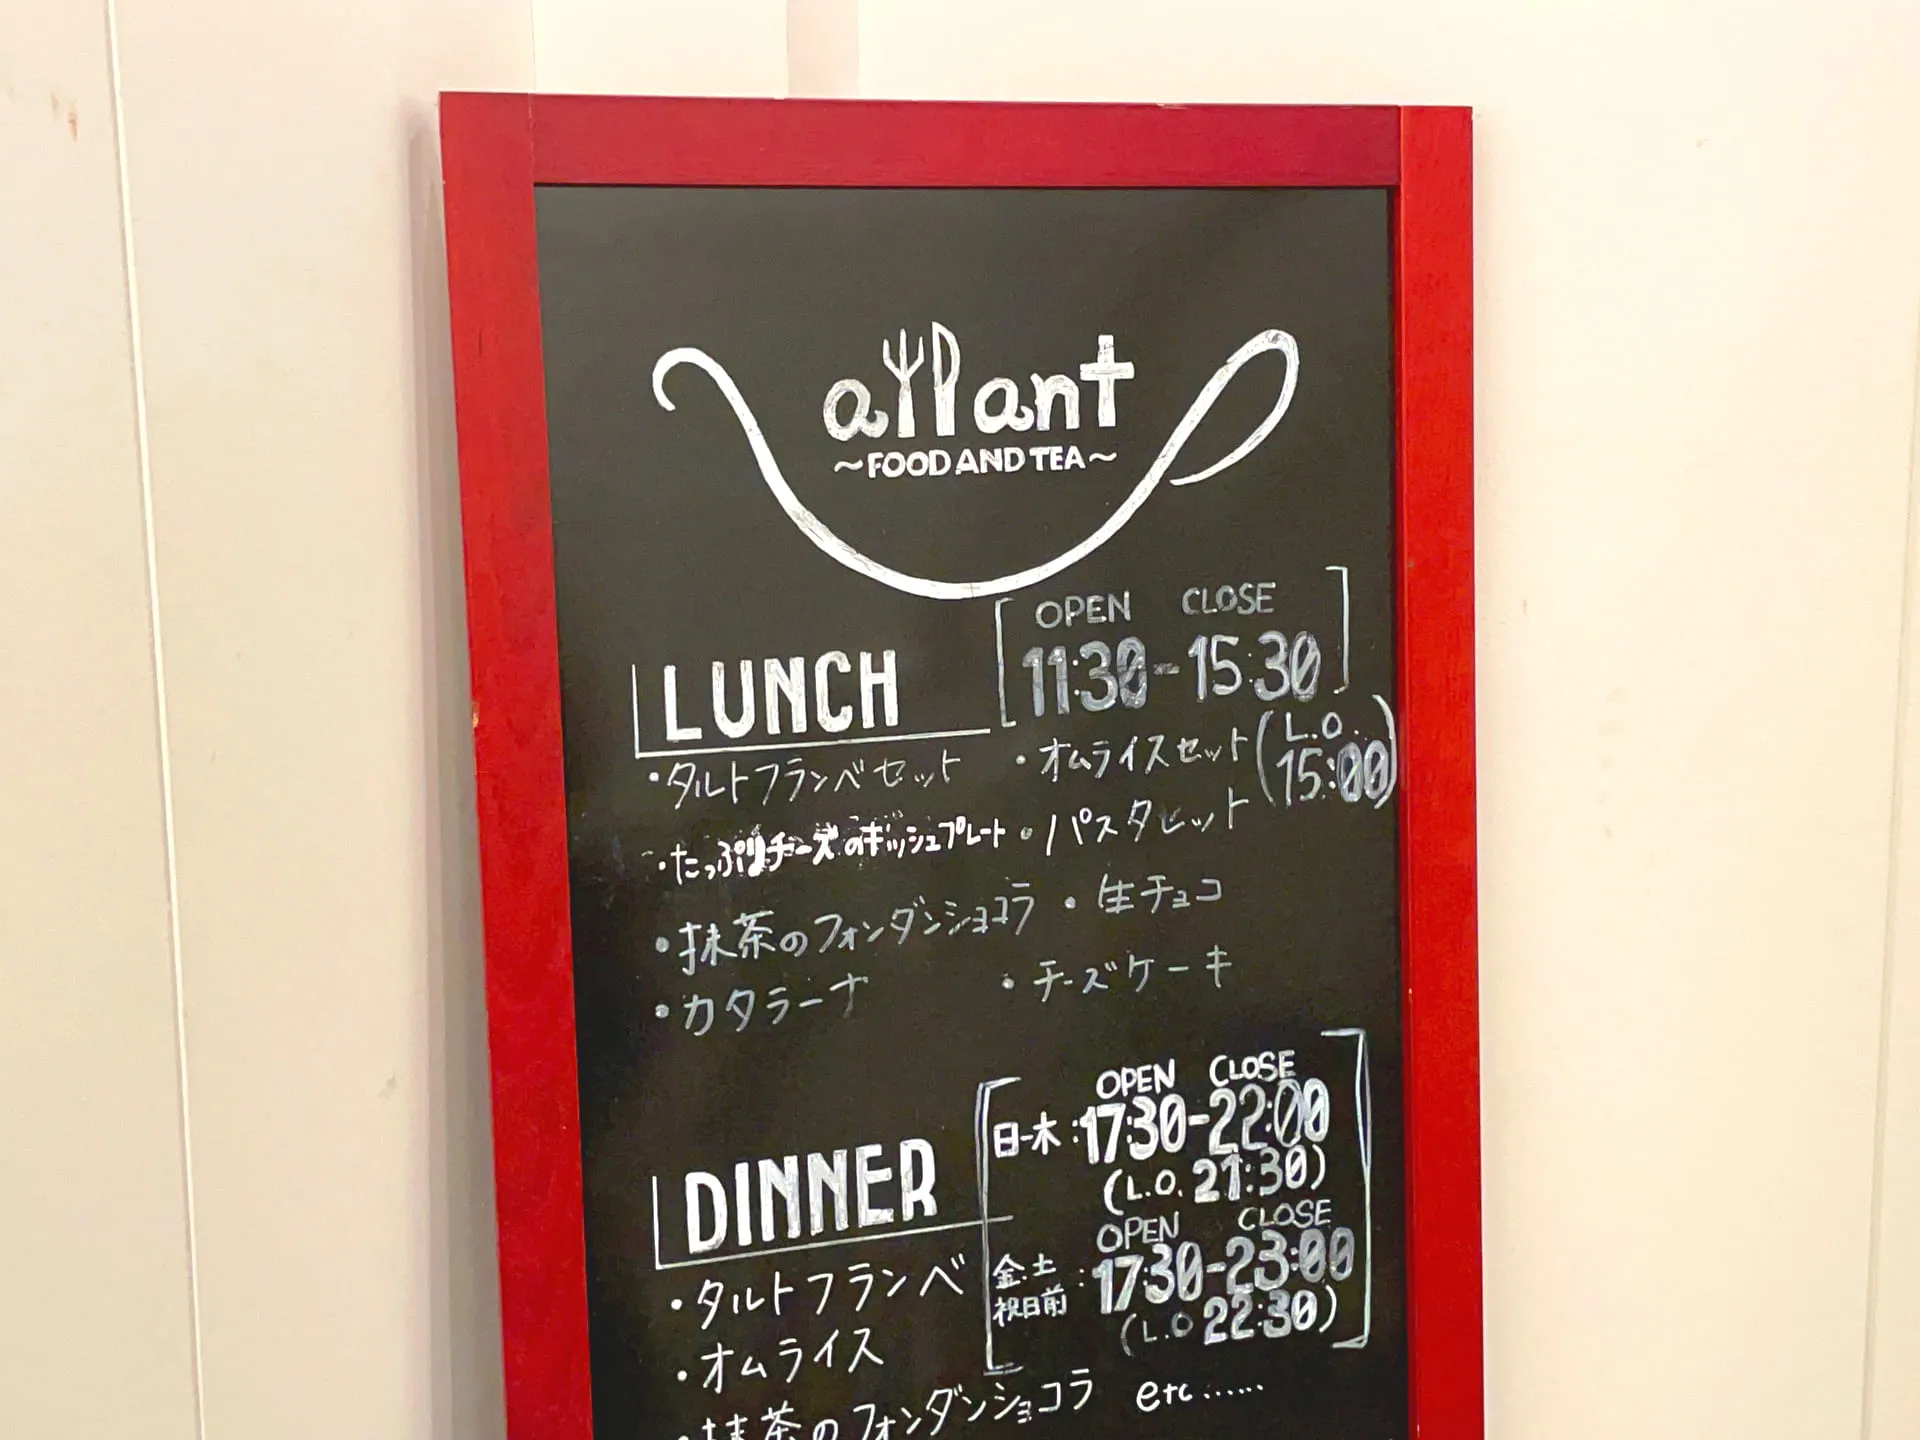 allant
~FOOD AND TEA~
OPEN CLOSE
LUNCH 11:30-15:30
・タルトフランベセット ・オムライスセット (L.O. 15:00)
・たっぷりチーズのキッシュプレート ・パスタセット
・抹茶のフォンダンショコラ ・生チョコ
・カタラーナ ・チーズケーキ
OPEN CLOSE
日-木:17:30-22:00
(L.O. 21:30)
DINNER
OPEN CLOSE
金.土 祝日前:17:30-23:00
(L.O 22:30)
・タルトフランベ
・オムライス
・抹茶のフォンダンショコラ etc......